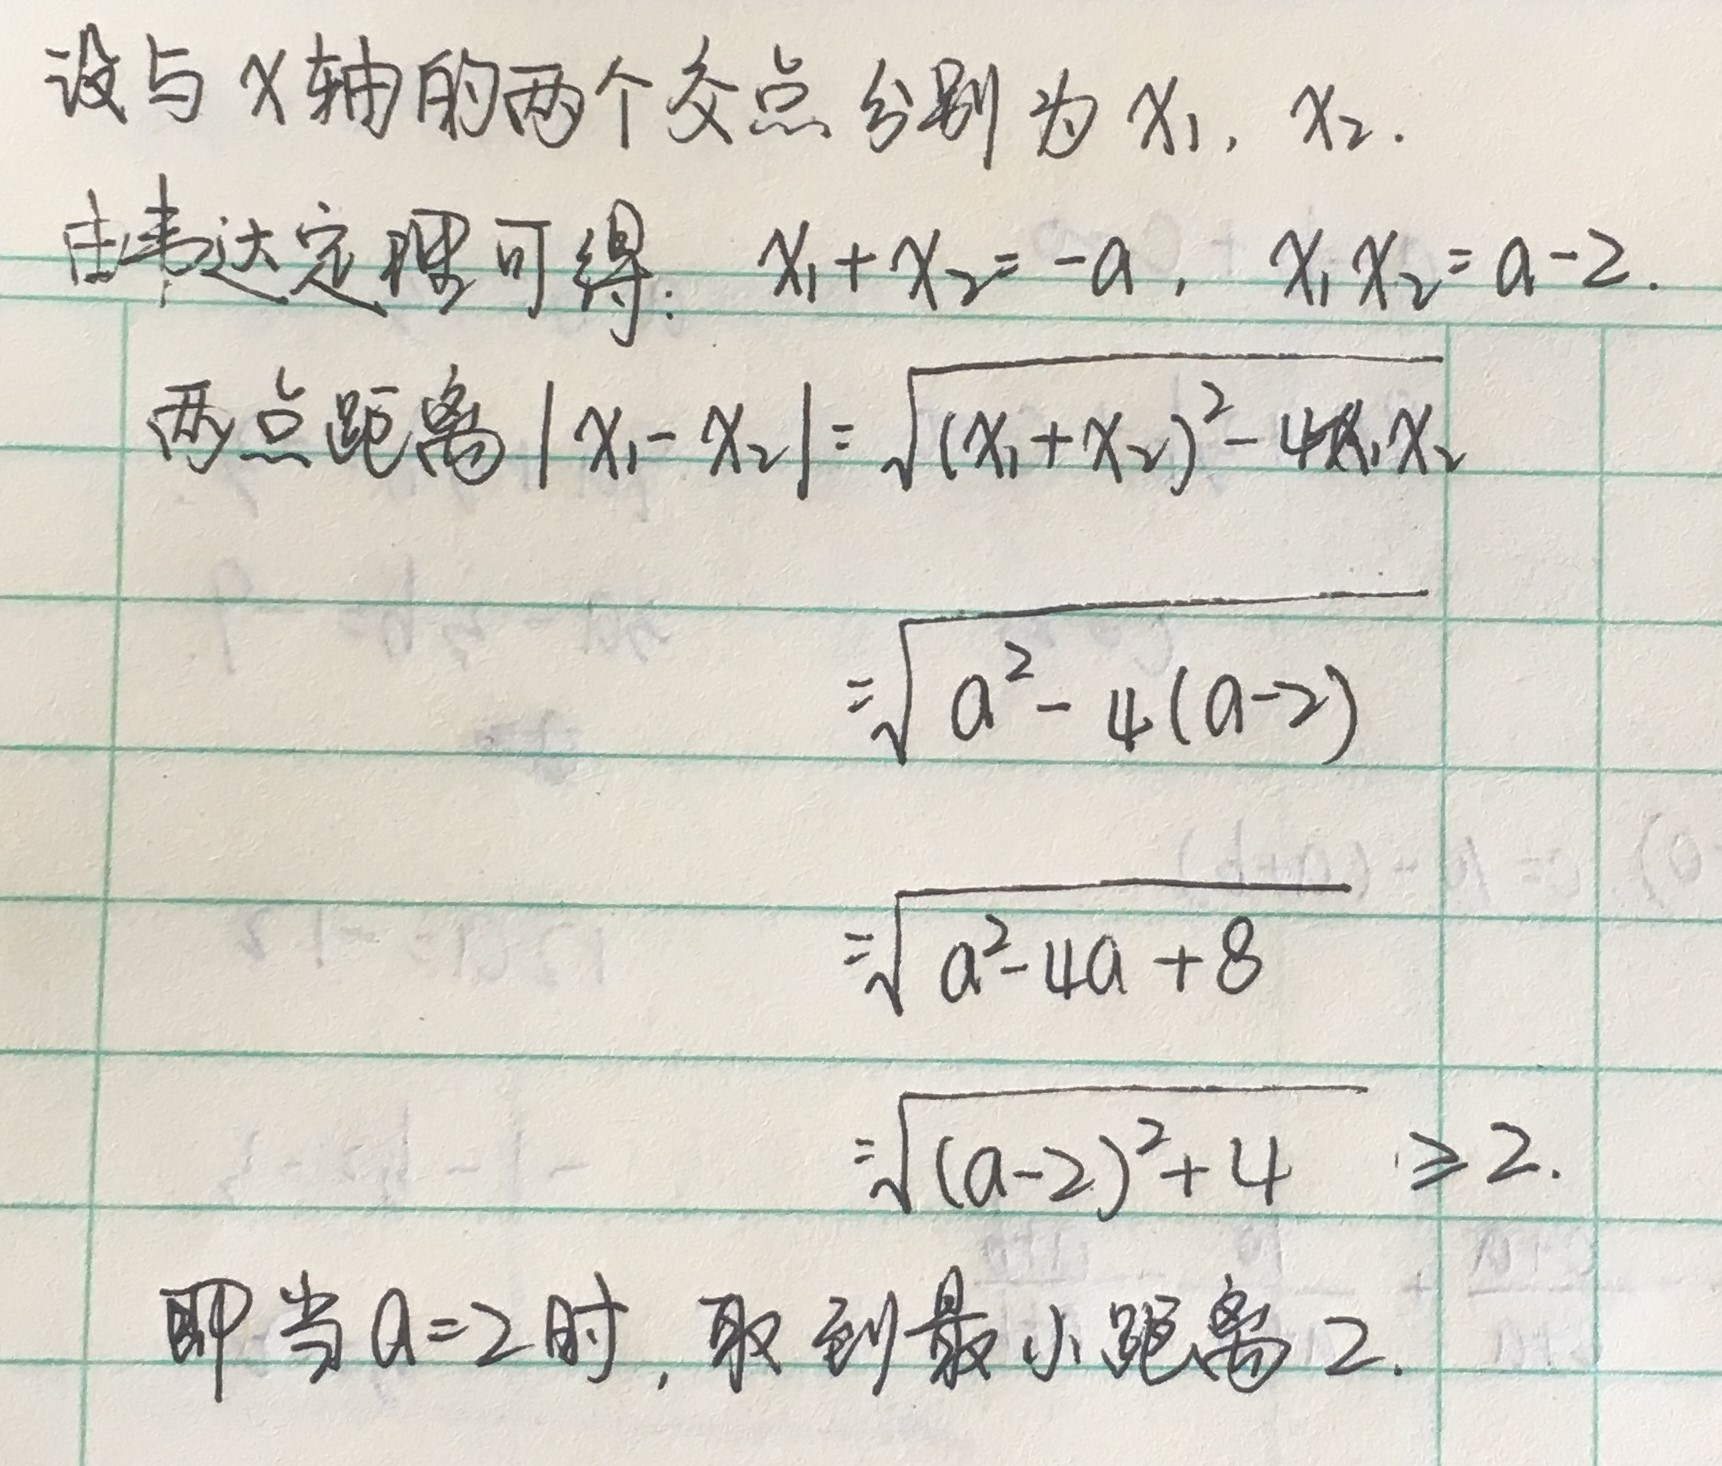 设与x轴的两个交点分别为x₁, x₂.
由韦达定理可得: x₁+x₂=-a, x₁x₂=a-2.
两点距离|x₁-x₂|=√((x₁+x₂)²-4x₁x₂)
=√(a²-4(a-2))
=√(a²-4a+8)
=√((a-2)²+4) ≥2.
即当a=2时,取到最小距离2.